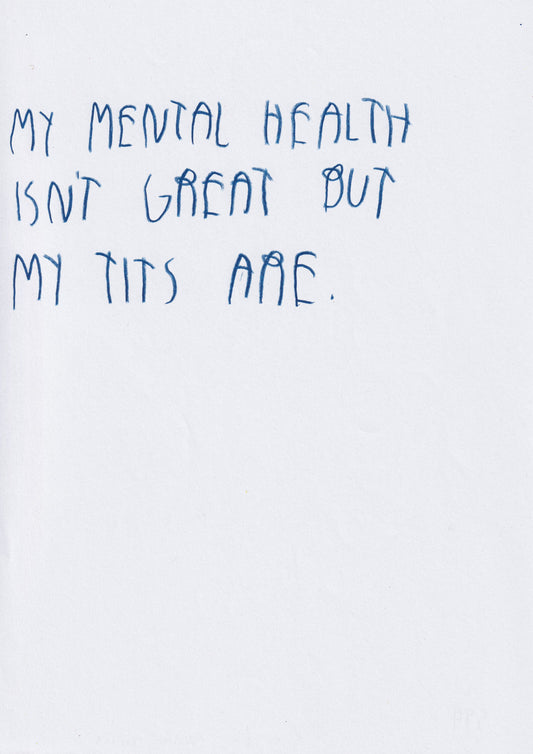 MY MENTAL HEALTH
ISN'T GREAT BUT
MY TITS ARE.